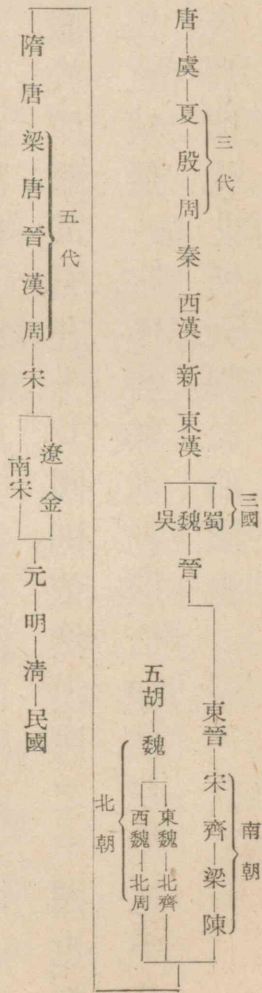 唐—虞—夏—殷—周—秦—西漢—新—東漢
三代
蜀
魏
吳
三國
晉
東晉—宋—齊—梁—陳
南朝
五胡—魏
東魏—北齊
西魏—北周
北朝
隋—唐—梁—唐—晉—漢—周—宋
五代
遼—金
南宋
元—明—清—民國